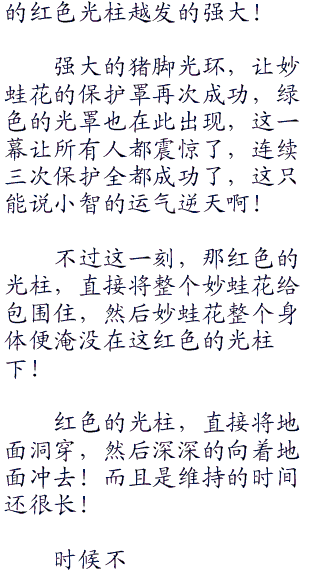 的红色光柱越发的强大！
强大的猪脚光环，让妙
蛙花的保护罩再次成功，绿
色的光罩也在此出现，这一
幕让所有人都震惊了，连续
三次保护全都成功了，这只
能说小智的运气逆天啊！
不过这一刻，那红色的
光柱，直接将整个妙蛙花给
包围住，然后妙蛙花整个身
体便淹没在这红色的光柱
下！
红色的光柱，直接将地
面洞穿，然后深深的向着地
面冲去！而且是维持的时间
还很长！
时候不